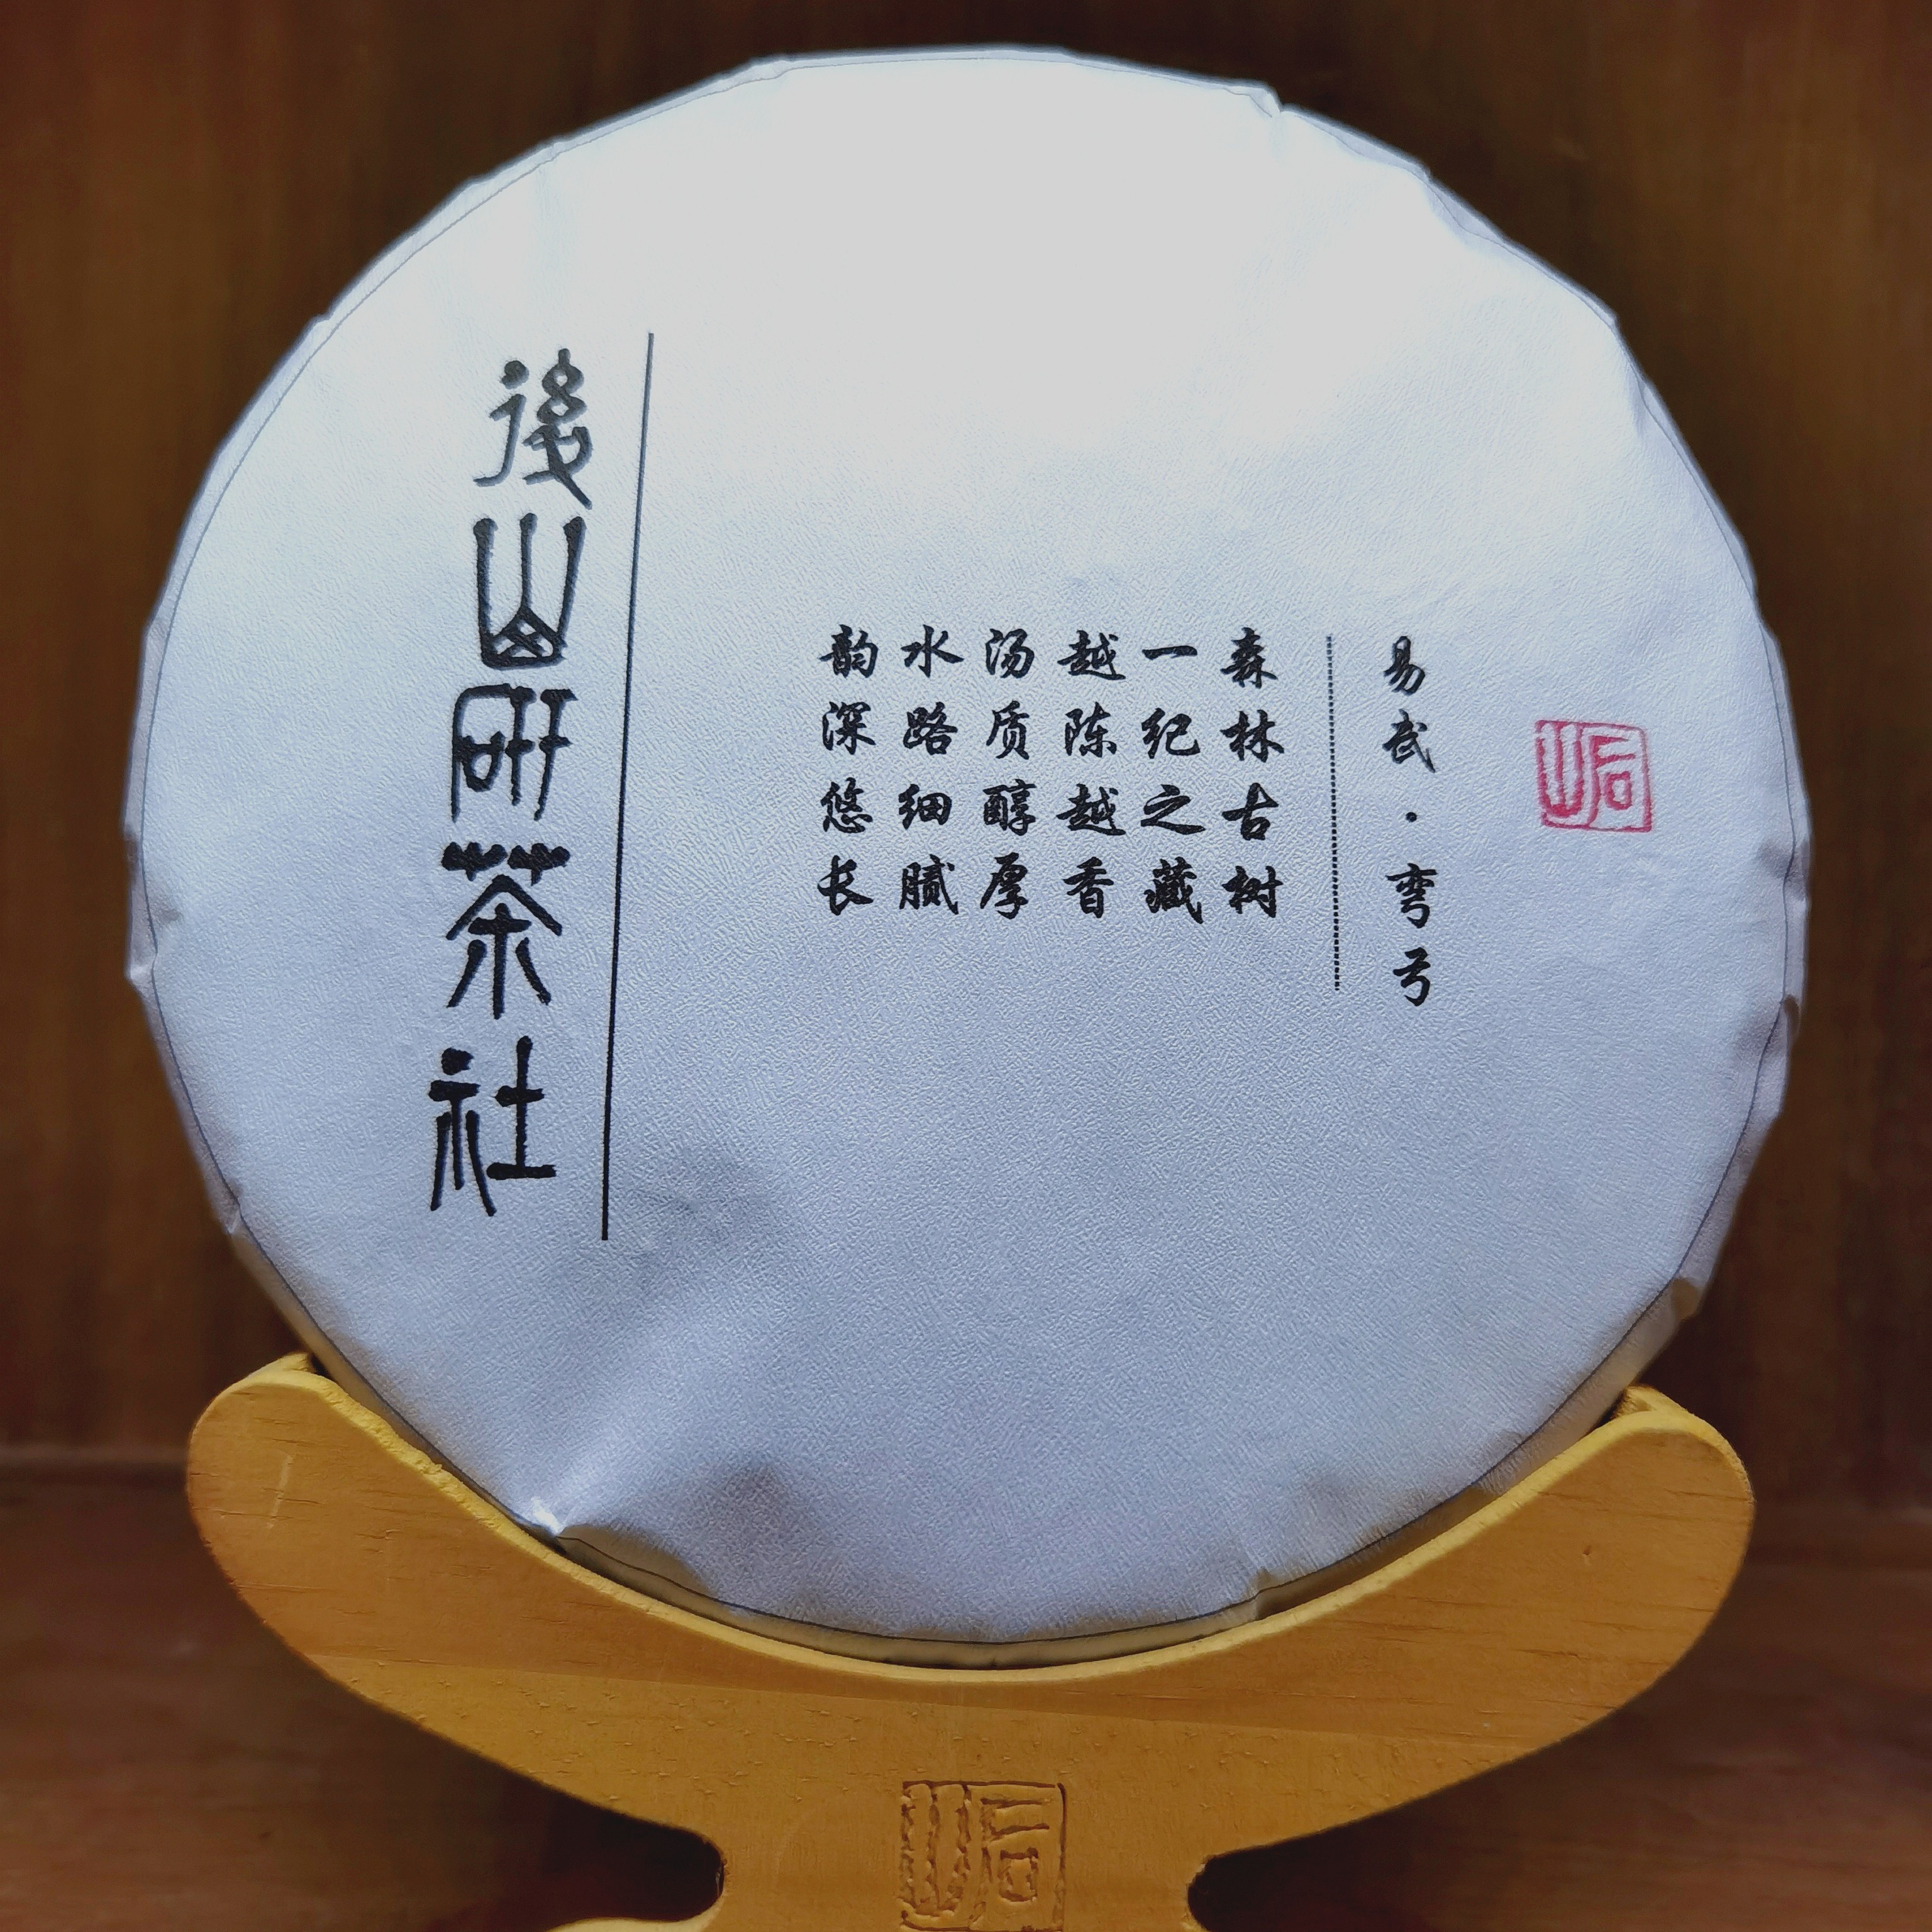 后山
易武·弯弓
森林古树
一纪之藏
越陈越香
汤质醇厚
水路细腻
韵深悠长
後山研茶社
后山